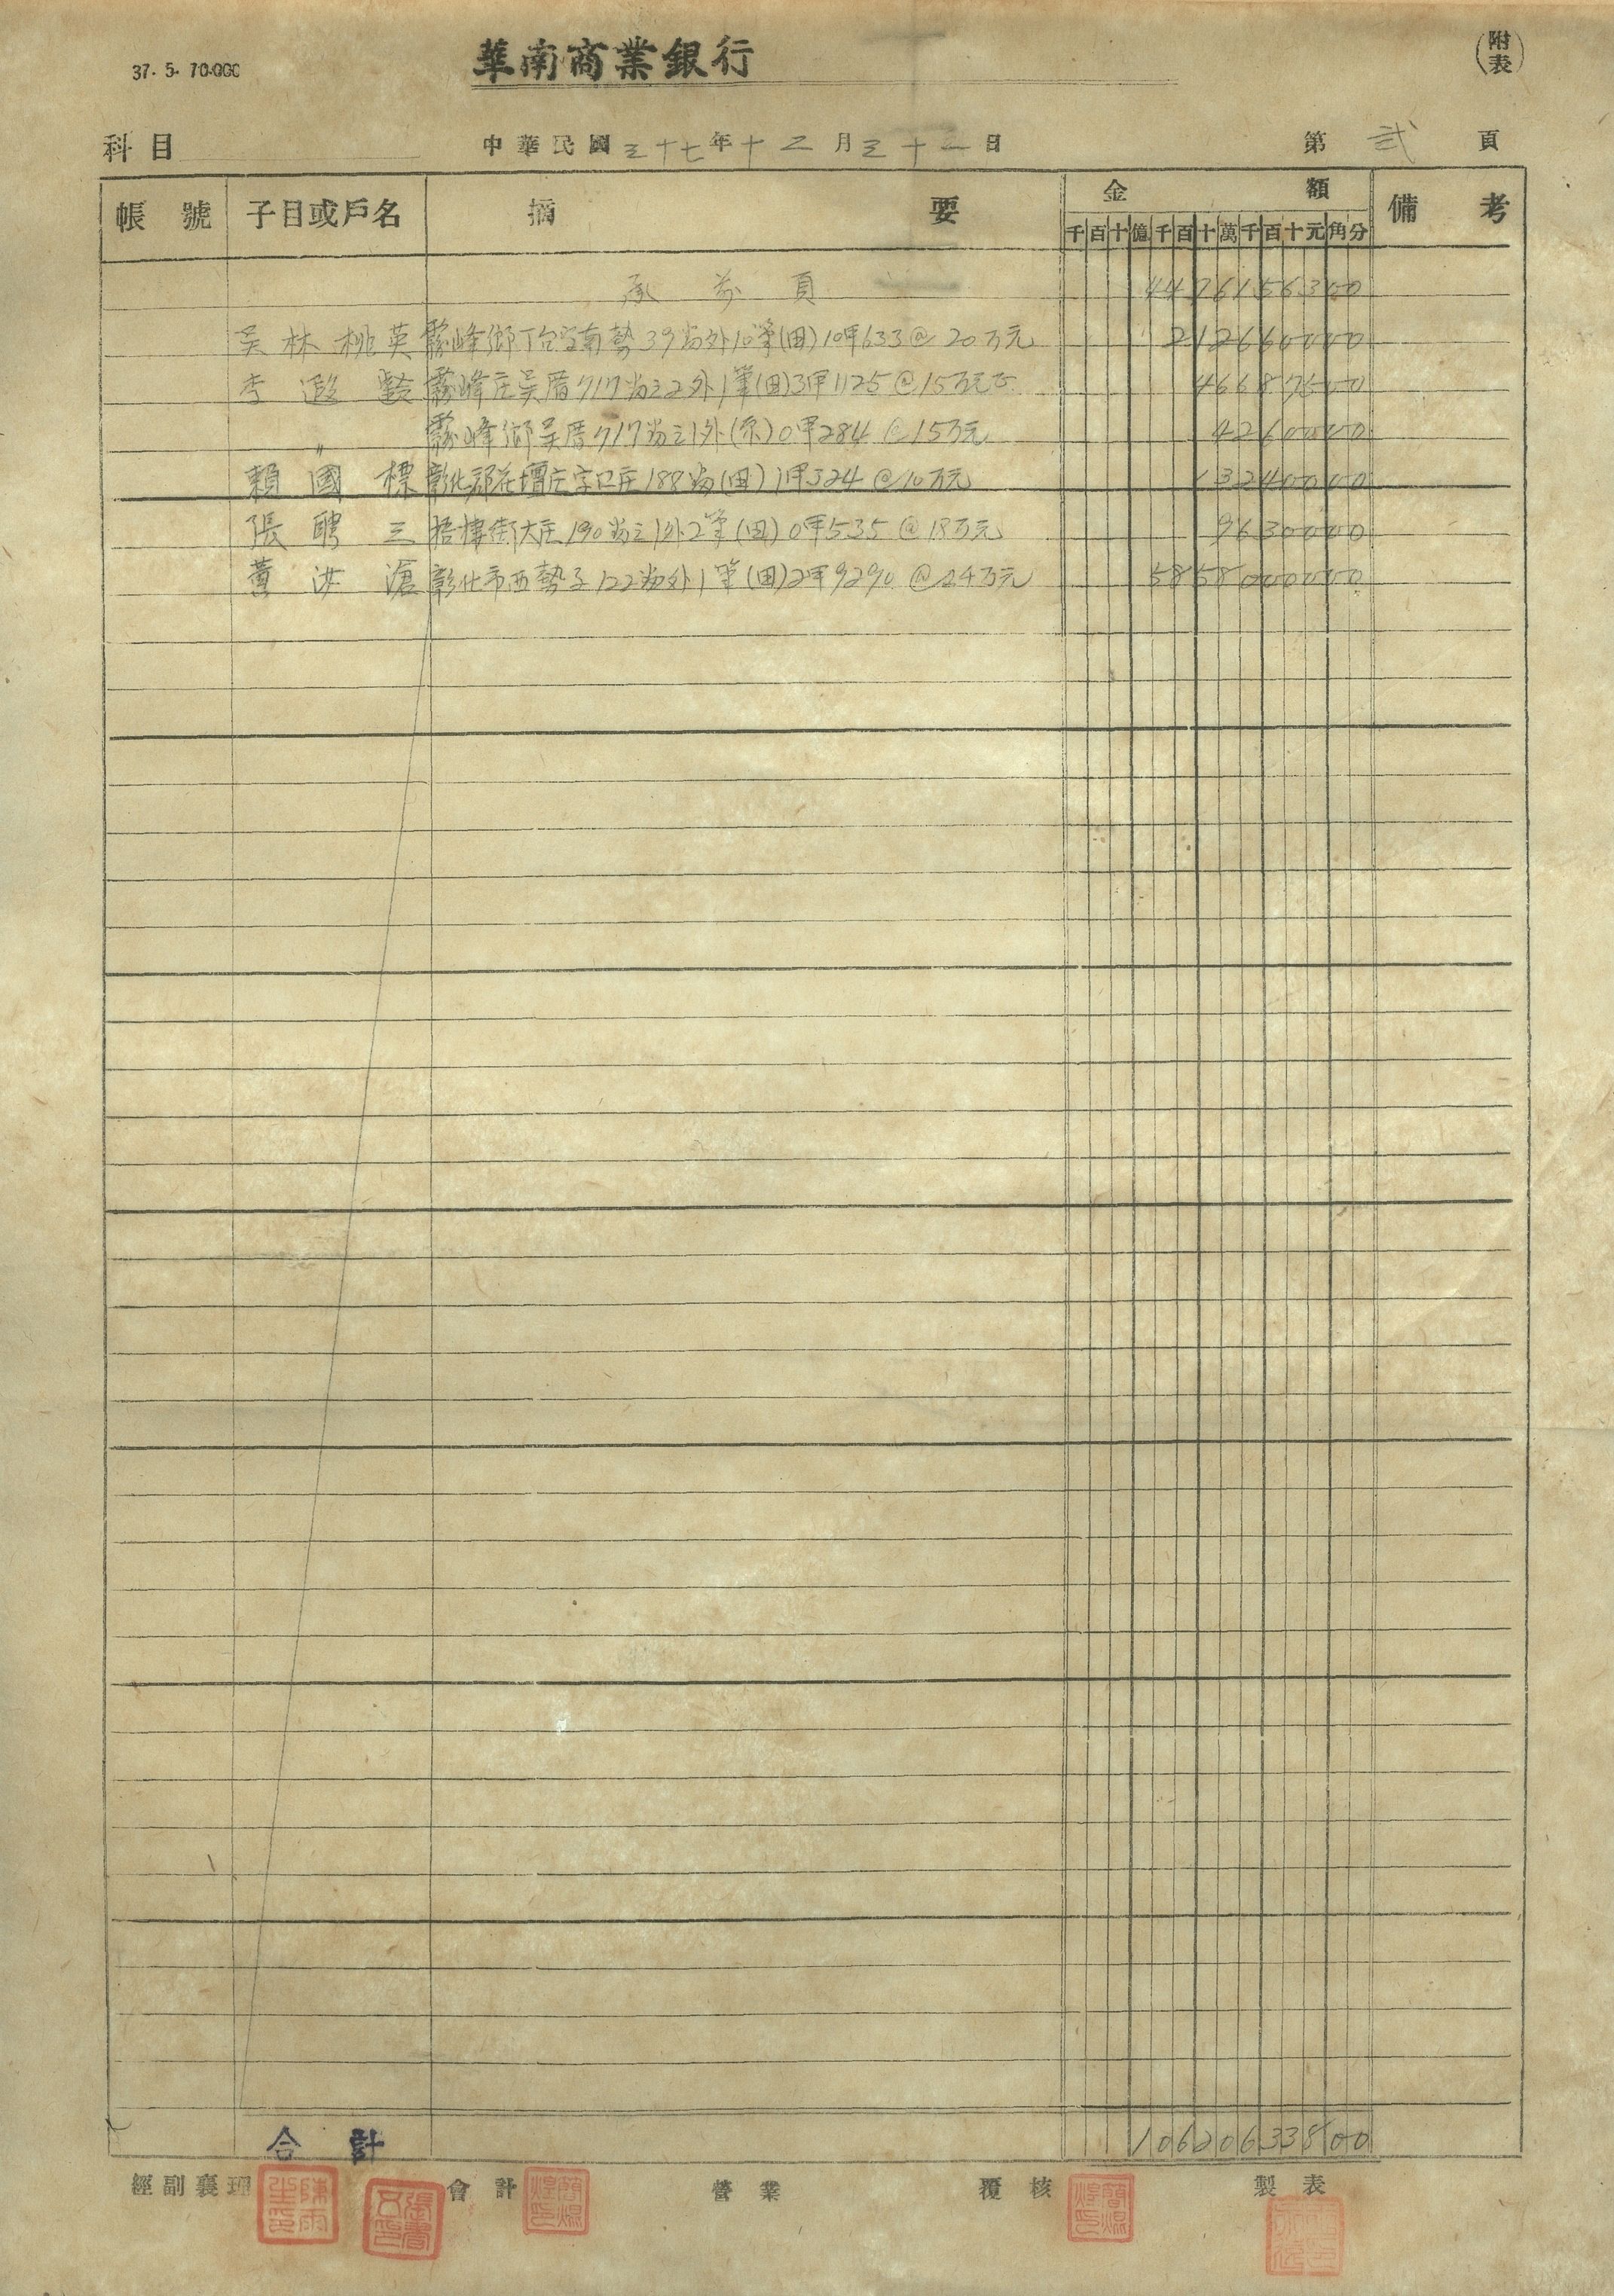 37. 5. 70.000
華南商業銀行
(附表)
科目 中華民國三十七年十二月三十一日 第 弍 頁
帳號 子目或戶名 摘要 金額 備考
千百十億千百十萬千百十元角分
承前頁
吳林桃英 霧峰鄉丁台字南勢39番外10筆(田)10甲633@20万元 2126600.00
李遐齡 霧峰庄吳厝717番之2外1筆(田)3甲1125@15万元 466875.00
〃 霧峰鄉吳厝717番之1外(原)0甲284@15万元 42600.00
賴國標 彰化郡花壇庄字口庄188番(田)1甲324@10万元 132400.00
張聘三 梧棲街大庄190番之1外2筆(田)0甲535@18万元 96300.00
黃洪滄 彰化市西勢子122番外1筆(田)2甲9290@24万元
合計 10620633800
經副襄理 會計 營業 覆核 製表